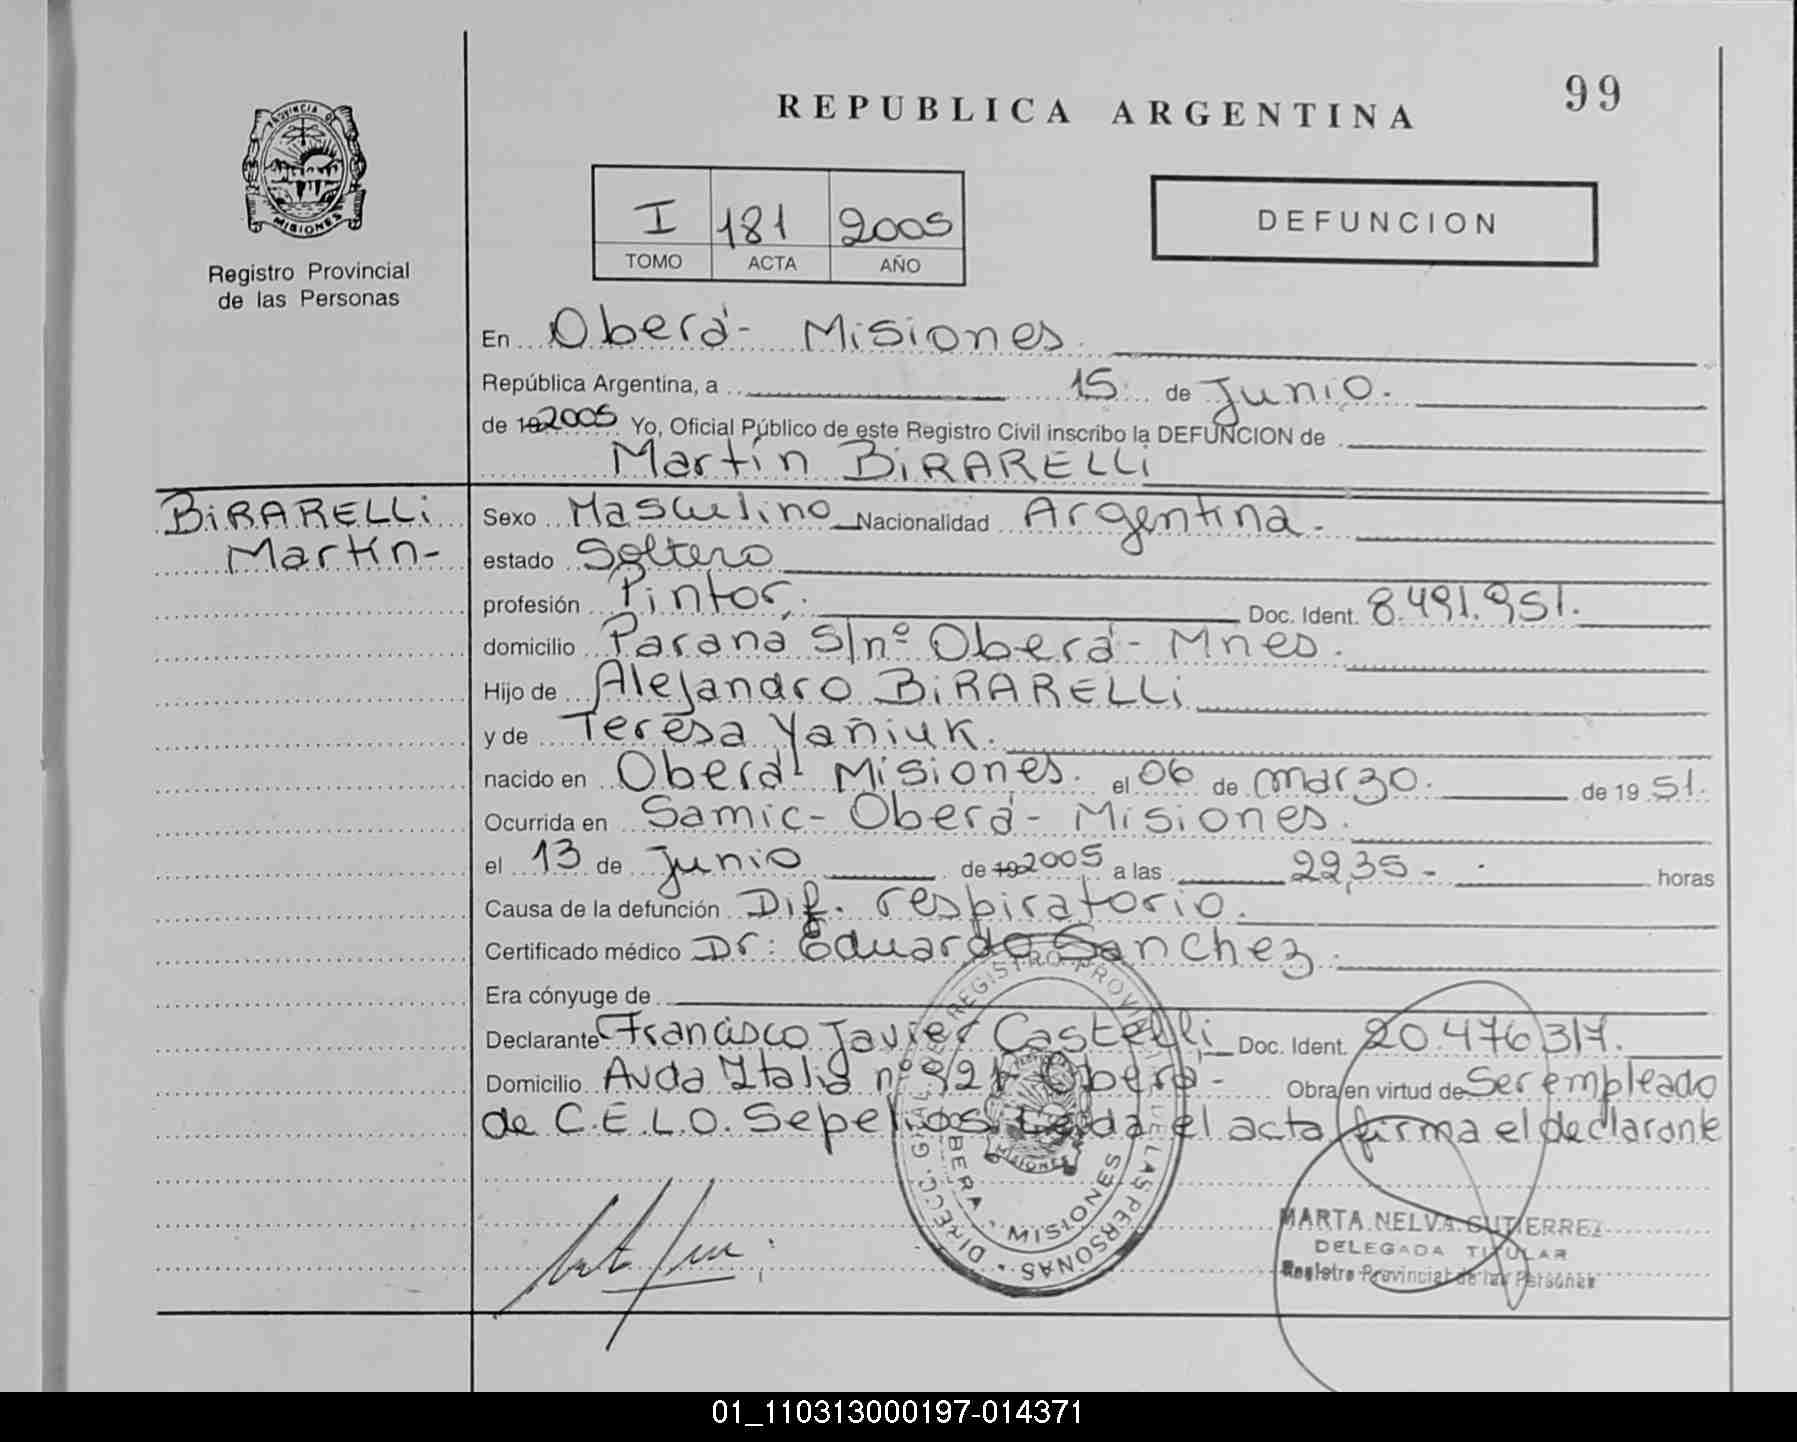 99
REPUBLICA ARGENTINA
PROVINCIA DE
MISIONES
Registro Provincial
de las Personas
I 181 2005
TOMO ACTA AÑO
DEFUNCION
En Oberá - Misiones.
República Argentina, a 15 de Junio.
de 192005 Yo, Oficial Público de este Registro Civil inscribo la DEFUNCION de
Martín BiRARELLi
BiRARELLi
Martín-
Sexo Masculino Nacionalidad Argentina.
estado Soltero
profesión Pintor. Doc. Ident. 8.491.951.
domicilio Paraná S/nº Oberá - Mnes.
Hijo de Alejandro BiRARELLi
y de Teresa Yañiuk.
nacido en Oberá - Misiones. el 06 de marzo. de 19 51.
Ocurrida en Samic - Oberá - Misiones.
el 13 de Junio de 192005 a las 22,35 - horas
Causa de la defunción Dif. respiratorio.
Certificado médico Dr: Eduardo Sanchez.
Era cónyuge de
Declarante Francisco Javier Castelli Doc. Ident. 20.476.317.
Domicilio Avda Italia nº 921 Oberá - Obra en virtud de Ser empleado
de C.E.L.O. Sepelios Leida el acta firma el declarante
DIRECC. GRAL. DEL REGISTRO PROVINCIAL DE LAS PERSONAS
OBERA - MISIONES
MISIONES
MARTA NELVA GUTIERREZ
DELEGADA TITULAR
Registro Provincial de las Personas
01_110313000197-014371